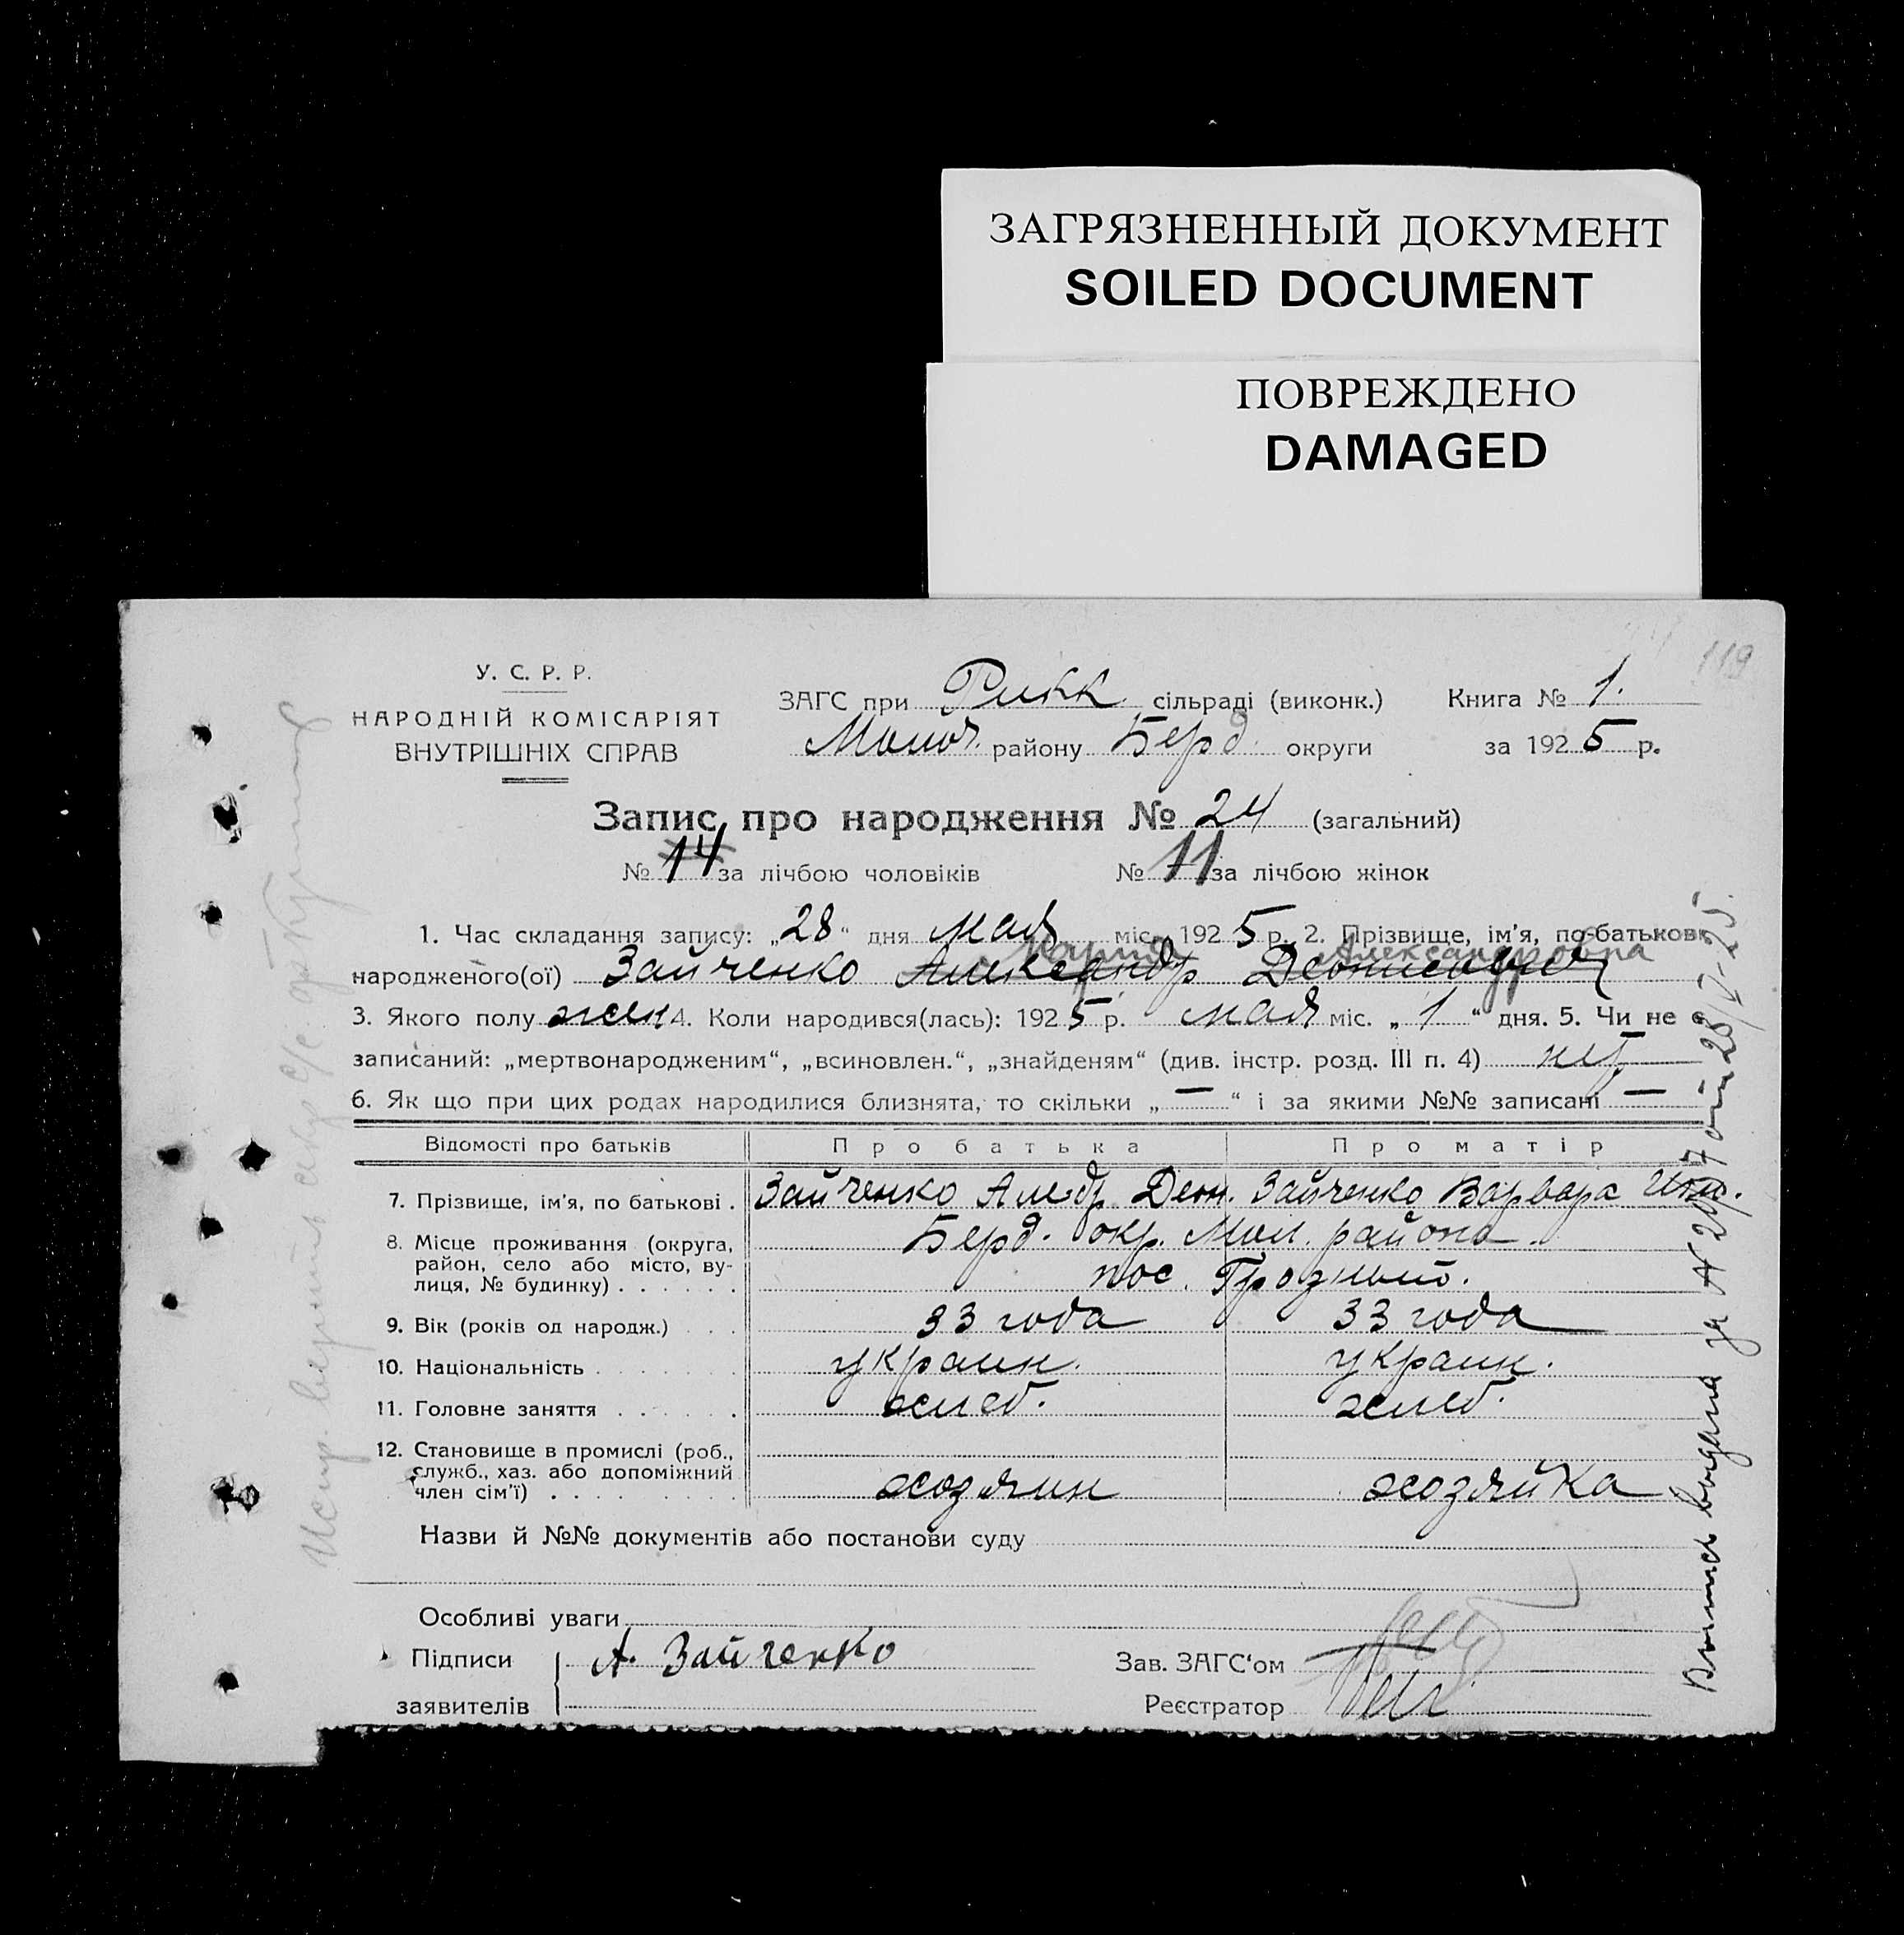 ЗАГРЯЗНЕННЫЙ ДОКУМЕНТ
SOILED DOCUMENT
ПОВРЕЖДЕНО
DAMAGED
119
У. С. Р. Р.
НАРОДНІЙ КОМІСАРІЯТ
ВНУТРІШНІХ СПРАВ
ЗАГС при Рикк сільраді (виконк.)
Молоч. району Берд. округи
Книга № 1.
за 1925 р.
Запис про народження № 24 (загальний)
№ 14 за лічбою чоловіків № 11 за лічбою жінок
1. Час складання запису: „28“ дня мая міс. 1925 р. 2. Прізвище, ім'я, по-батькові
Мария Александровна
народженого(ої) Зайченко Александр
3. Якого полу жен 4. Коли народився(лась): 1925 р. мая міс. „1“ дня. 5. Чи не є
записаний: „мертвонародженим“, „всиновлен.“, „знайденям“ (див. інстр. розд. III п. 4) нет
6. Як що при цих родах народилися близнята, то скільки „—“ і за якими №№ записані —
Відомості про батьків Про батька Про матір
7. Прізвище, ім'я, по батькові . Зайченко Алекдр. Деон. Зайченко Варвара
8. Місце проживання (округа, район, село або місто, вулиця, № будинку) Берд. окр. Мол. района
пос. Грозный.
9. Вік (років од народж.) 33 года 33 года
10. Національність украин. украин.
11. Головне заняття хлеб. хлеб.
12. Становище в промислі (роб., служб., хаз. або допоміжний член сім'ї) хозяин хозяйка
Назви й №№ документів або постанови суду
Особливі уваги
Підписи заявителів А. Зайченко
Зав. ЗАГС‘ом
Реєстратор
Выпись выдана за № 207 от 28/V-25.
Испр. верить секр с/с